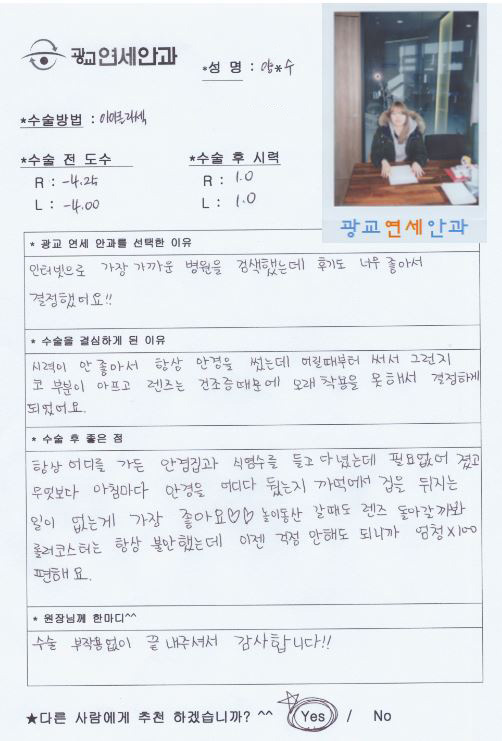 광교연세안과
*성 명 : 양*수
*수술방법 : 이이블라섹
*수술 전 도수
R : -4.25
L : -4.00
*수술 후 시력
R : 1.0
L : 1.0
광교연세안과
* 광교 연세 안과를 선택한 이유
인터넷으로 가장 가까운 병원을 검색했는데 후기도 너무 좋아서
결정했어요!!
* 수술을 결심하게 된 이유
시력이 안 좋아서 항상 안경을 썼는데 어릴때부터 써서 그런지
코 부분이 아프고 렌즈는 건조증때문에 오래 착용을 못해서 결정하게
되었어요.
* 수술 후 좋은 점
항상 어디를 가든 안경집과 식염수를 들고 다녔는데 필요없어 졌고
무엇보다 아침마다 안경을 어디다 뒀는지 까먹어서 집을 뒤지는
일이 없는게 가장 좋아요♡♡ 놀이동산 갈때도 렌즈 돌아갈까봐
롤러코스터는 항상 불안했는데 이젠 걱정 안해도 되니까 엄청x100
편해요.
* 원장님께 한마디^^
수술 부작용없이 끝내주셔서 감사합니다!!
★다른 사람에게 추천 하겠습니까? ^^ Yes / No